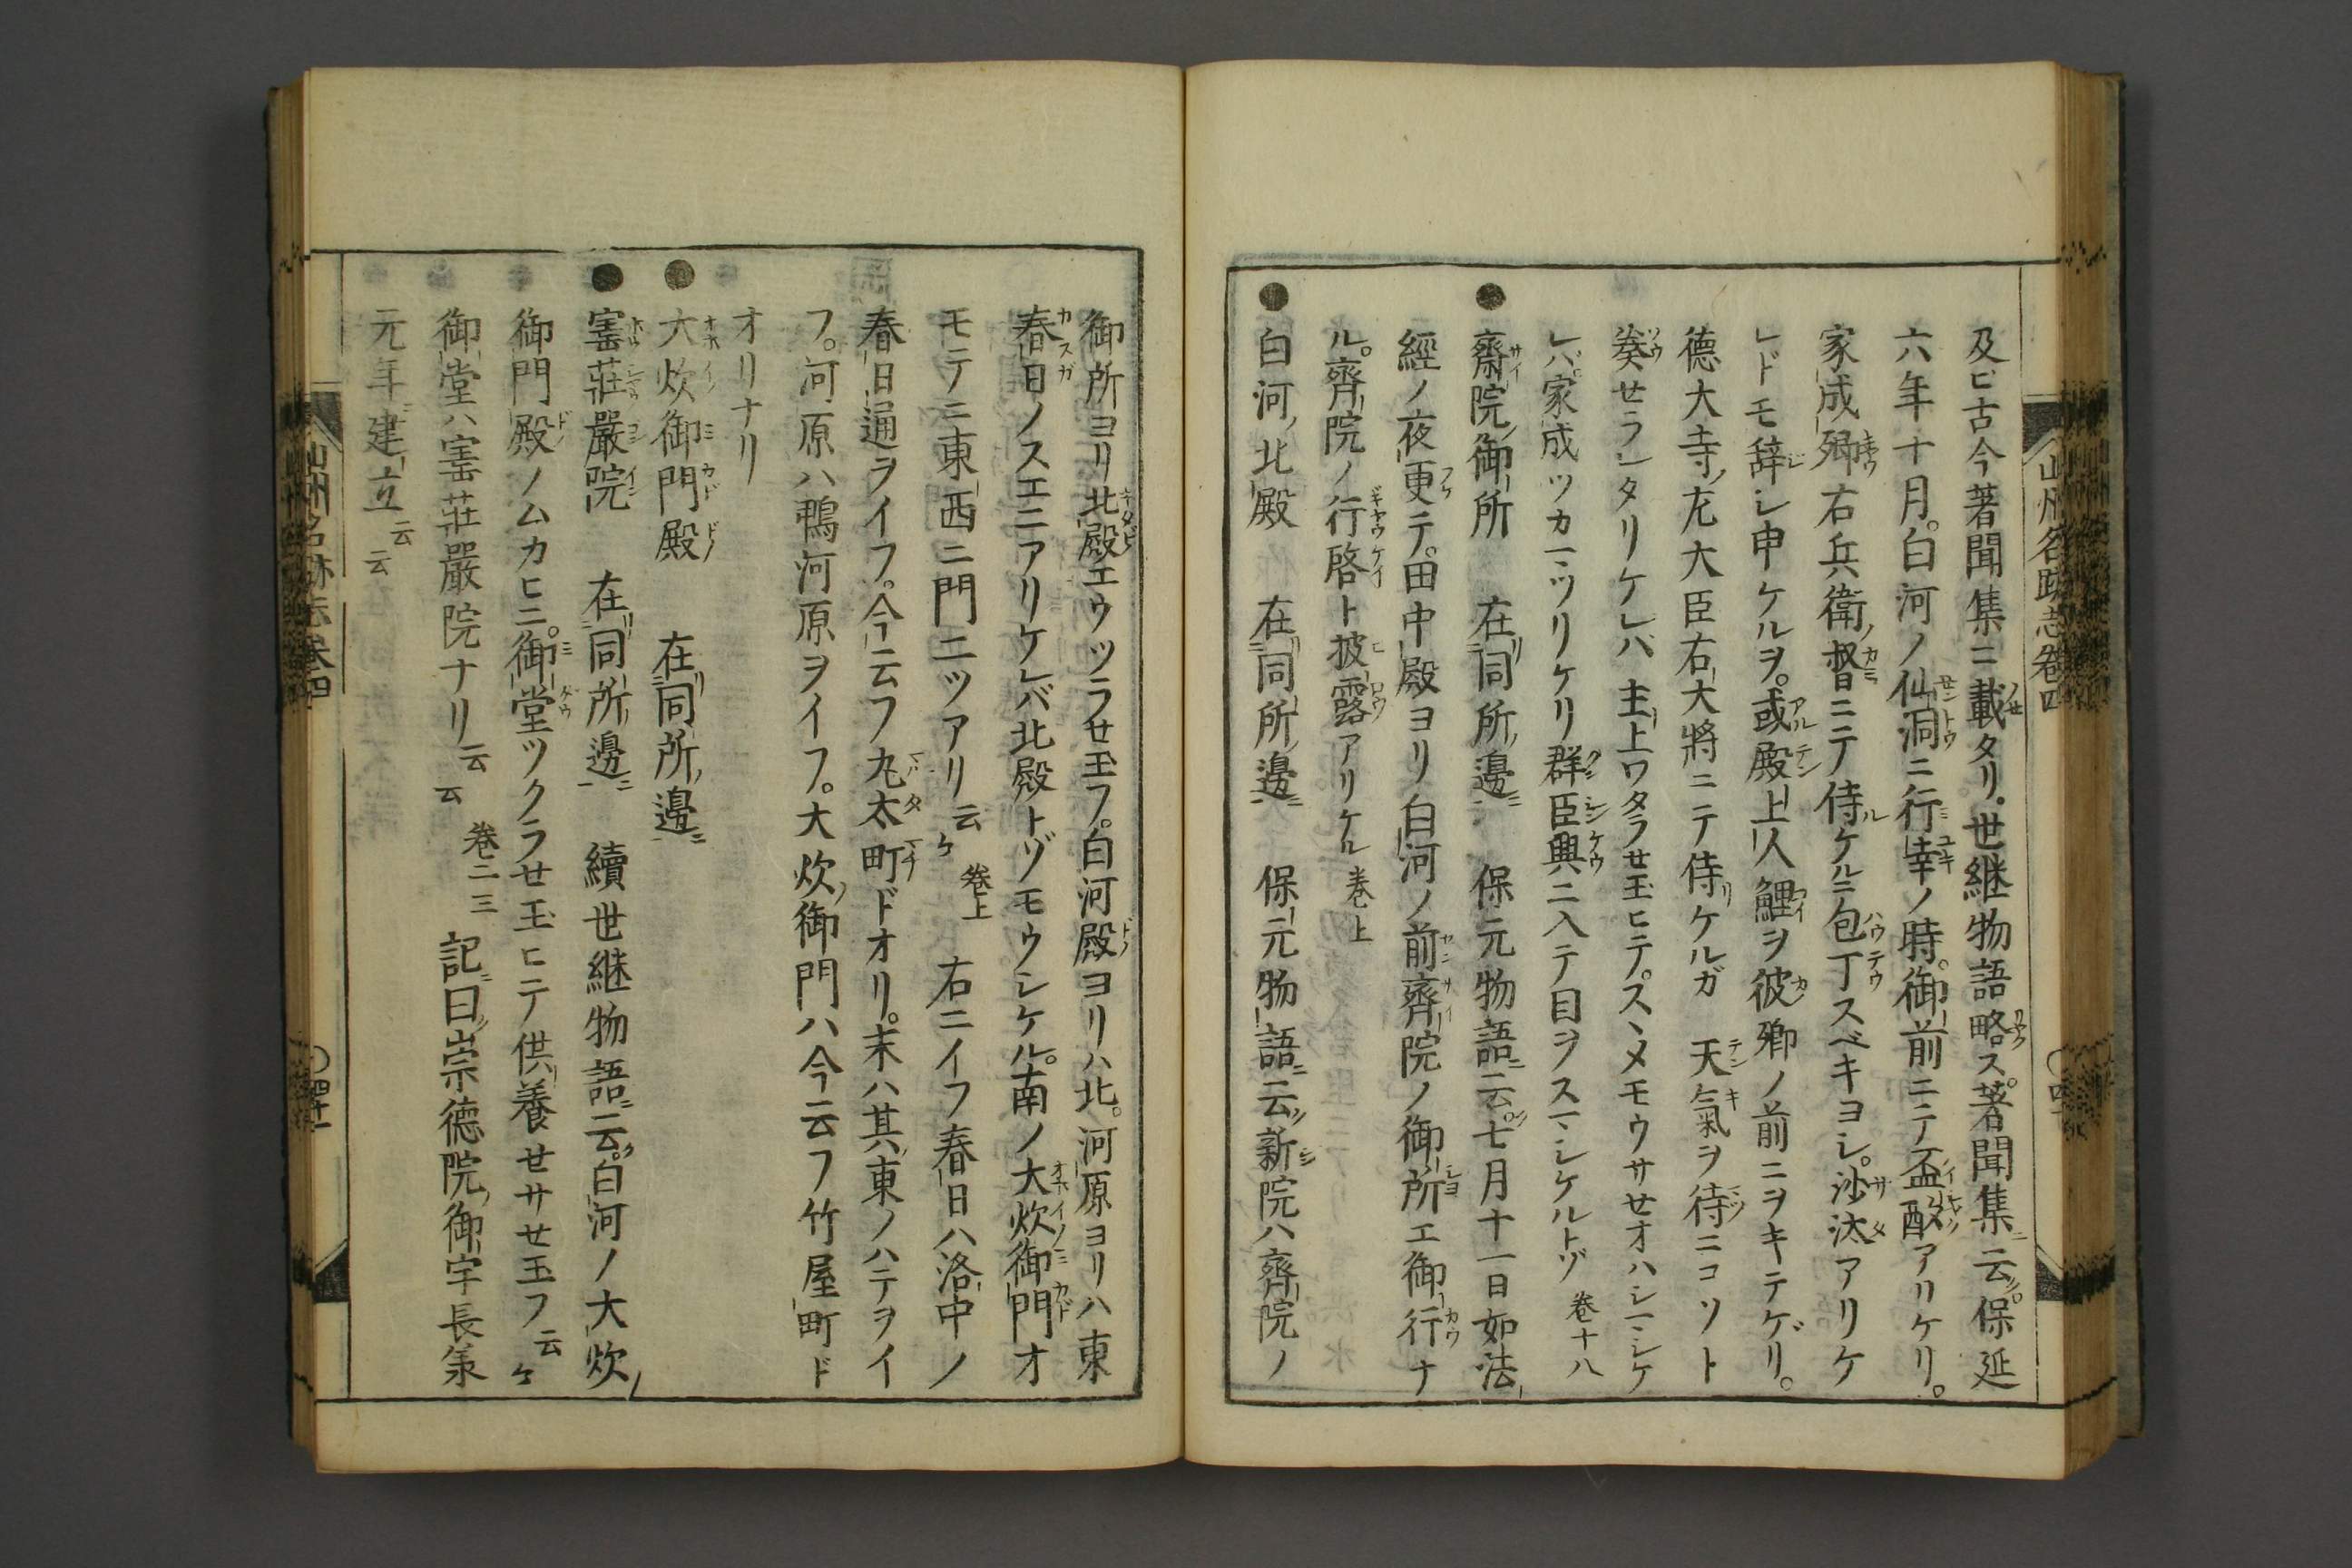 及ヒ古今著聞集ニ載タリ世継物語略ス。著聞集ニ云。保延
六年十月。白河ノ仙洞ニ行幸ノ時。御前ニテ盃酌アリケリ。
家成卿右兵衛ノ督ニテ侍ケルニ包丁スベキヨシ。沙汰アリケ
レドモ辞シ申ケルヲ。或殿上人鯉ヲ彼卿ノ前ニヲキテゲリ。
德大寺ノ左大臣右大將ニテ侍ケルガ 天氣ヲ待ニコソト
奏せラレタリケレバ主上ワタラせ玉ヒテ。スヽメモウサせオハシマシケ
レバ家成ツカマツリケリ群臣興ニ入テ目ヲスマシケルトゾ 巻十八
●齋院ノ御所 在同所ノ邊ニ 保元物語ニ云。七月十一日如法
經ノ夜更テ。田中殿ヨリ白河ノ前齊院ノ御所エ御行ナ
ル。齊院ノ行啓ト披露アリケル 巻上
●白河ノ北殿 在同所ノ邊ニ 保元物語ニ云新院ハ齊院ノ
山州名跡志巻四
御所ヨリ北殿エウツラせ玉フ。白河殿ヨリハ北。河原ヨリハ東
春日ノスエニアリケレバ北殿トゾモウシケル。南ノ大炊御門オ
モテニ東西ニ門二ツアリ云々 巻上 右ニイフ春日ハ洛中ノ
春日通ヲイフ。今云フ丸太町ドオリ。末ハ其東ノハテヲイ
フ。河原ハ鴨河原ヲイフ。大炊ノ御門ハ今云フ竹屋町ド
オリナリ
●大炊御門殿 在同所ノ邊ニ
●寳莊嚴院 在同所ノ邊ニ 續世継物語ニ云。白河ノ大炊ノ
御門殿ノムカヒニ。御堂ツクラせ玉ヒテ供養せサせ玉フ云々
御堂ハ寳莊嚴院ナリ云云 巻二三 記ニ曰崇德院ノ御宇長羕
元年建立云云
山州名跡志巻四
四十一